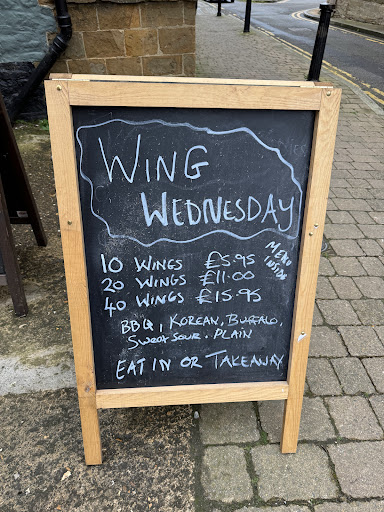 WING
WEDNESDAY
10 WINGS £5.95
20 WINGS £11.00
40 WINGS £15.95
MENU
INSIDE
BBQ, KOREAN, BUFFALO,
SWEET SOUR. PLAIN
EAT IN OR TAKEAWAY